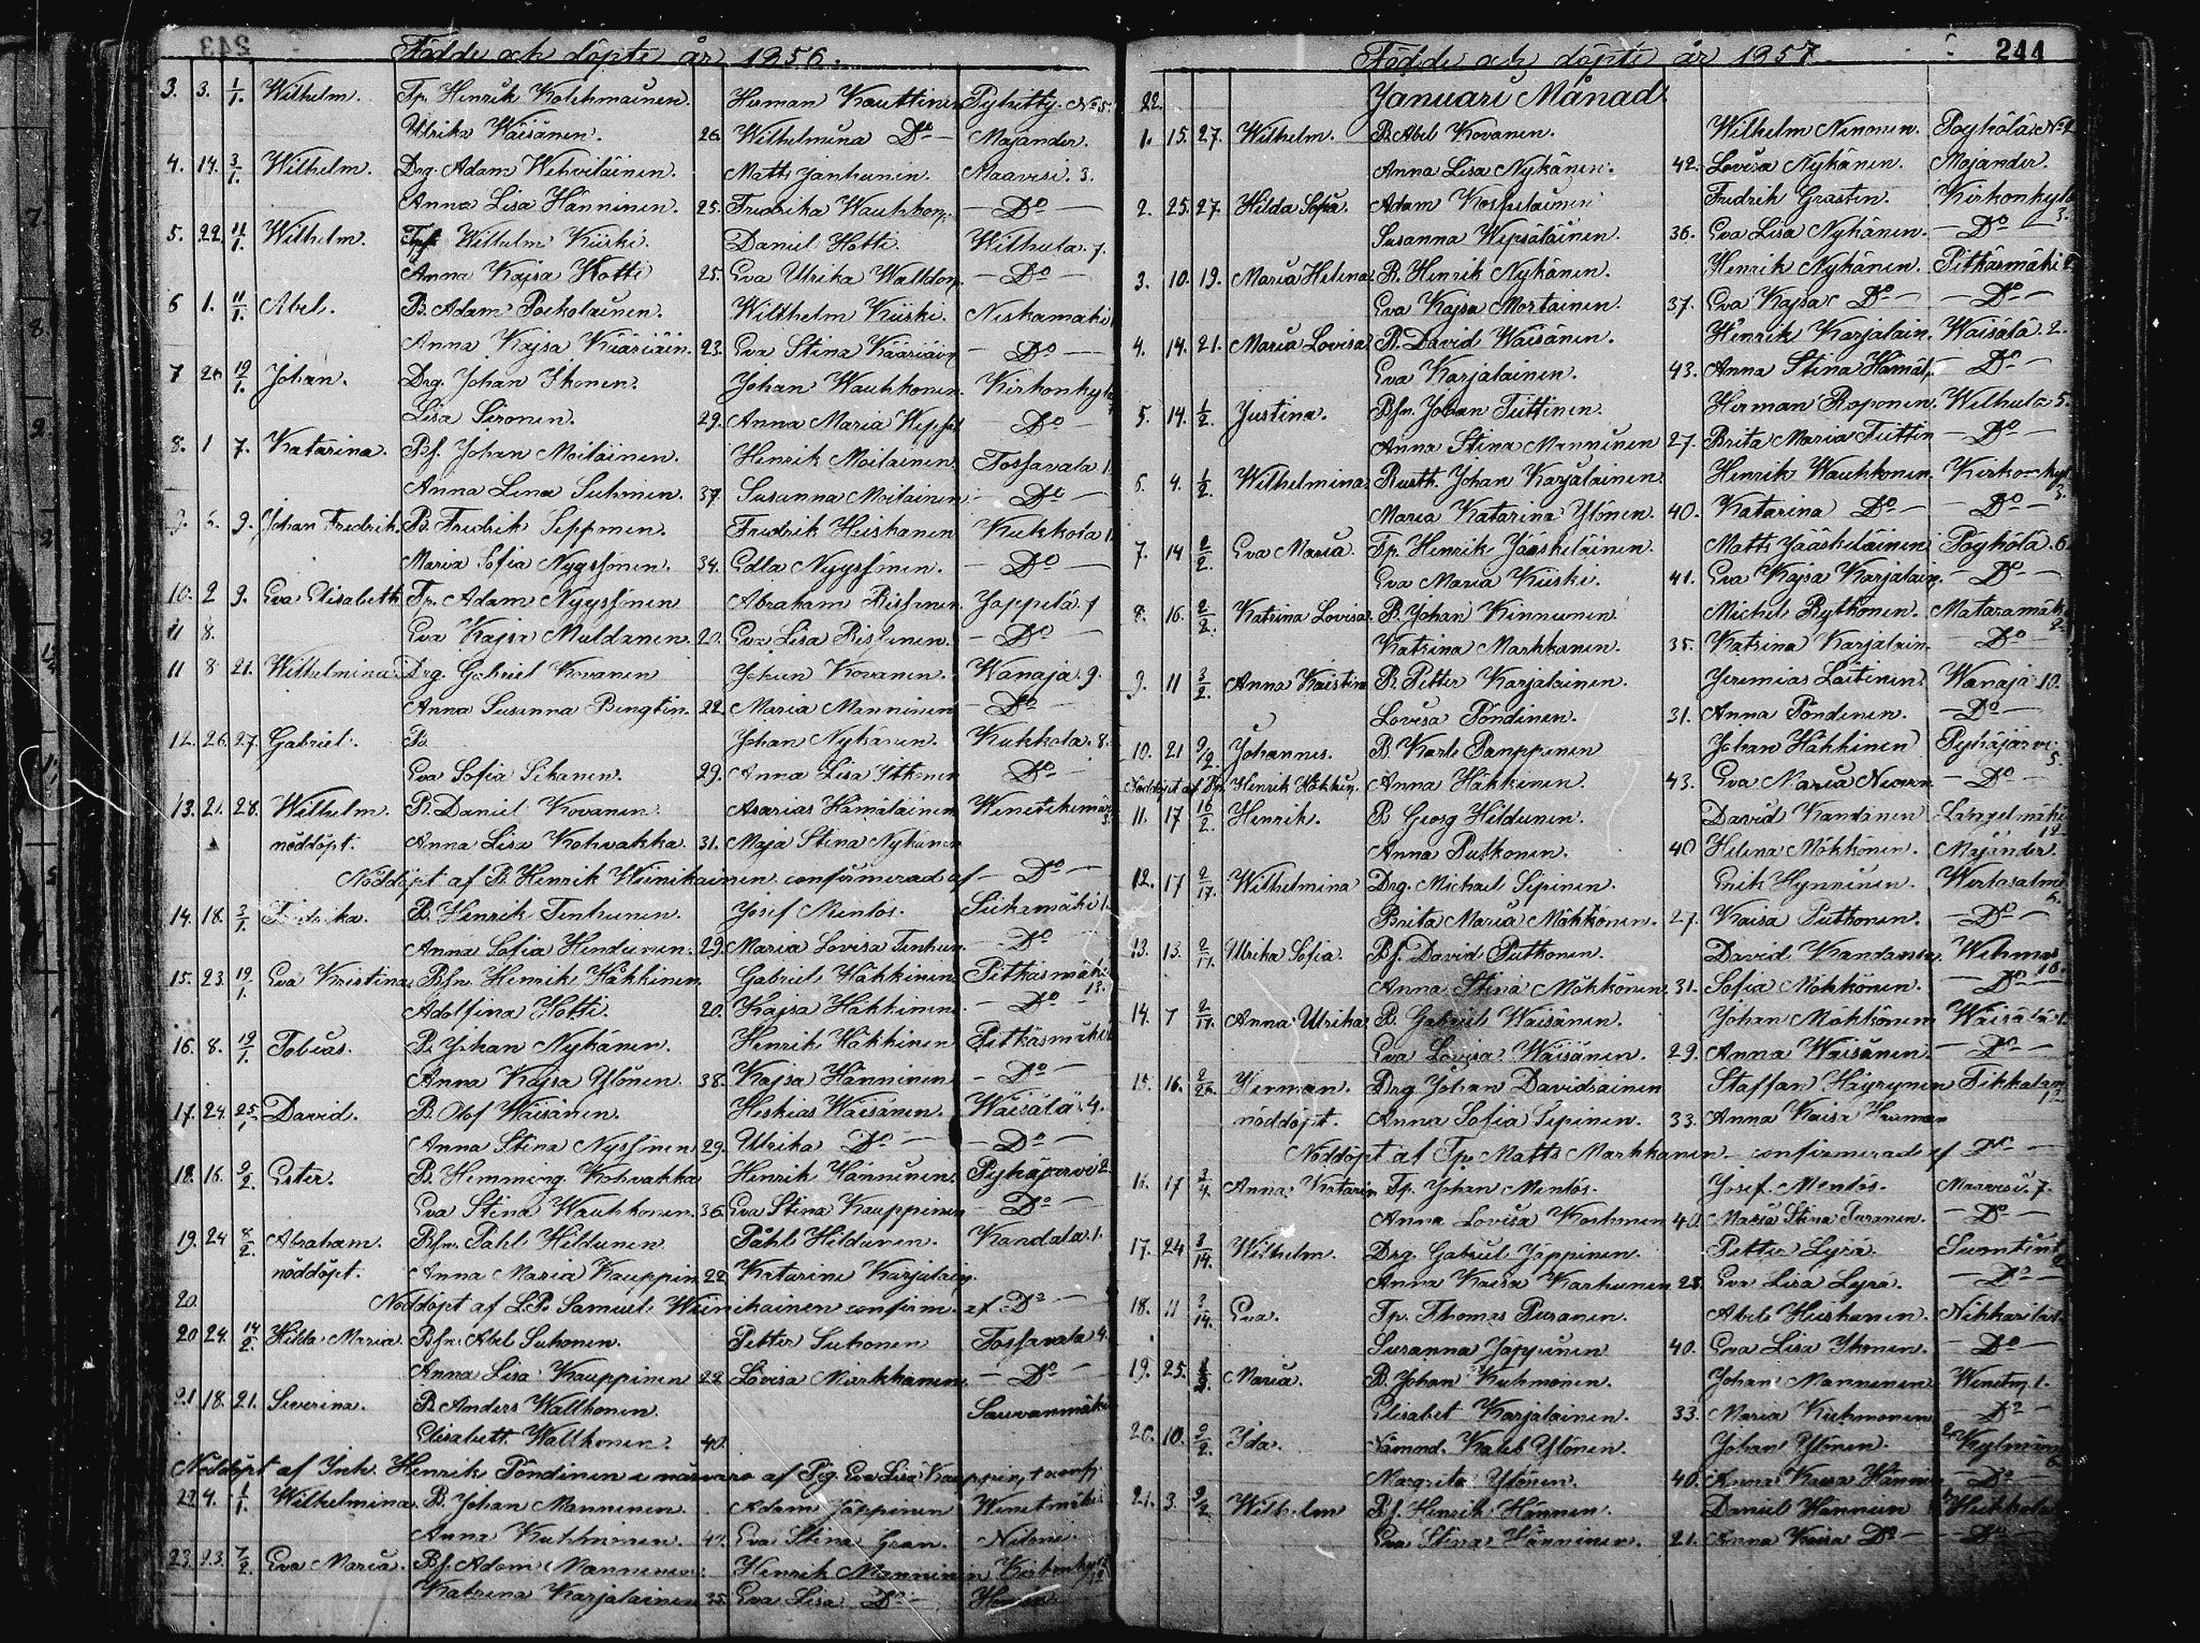 243
Födde och döpte år 1856.
3. 3. 1/1. Wilhelm. Tp. Henrik Kolehmainen. Herman Kauttinen Pyhitty. No 5.
Ulrika Wäisänen. 26. Wilhelmina Do Majander.
4. 14. 3/1. Wilhelm. Drg. Adam Wehviläinen. Matts Janhunin. Maavesi. 3.
Anna Lisa Hänninen. 25. Fredrika Wauhkon. Do
5. 22. 11/1. Wilhelm. Wilhelm Kiiski. Daniel Hotti. Wilhula. 7.
Anna Kajsa Hotti 25. Eva Ulrika Do
6 1. 11/1. Abel. B. Adam Wilhelm Kiiski. Niskamäki
Anna Kajsa Kääriäin. 23. Eva Stina Kääriäin Do
7 20 19/1. Johan. Drg. Johan Ikonen. Johan Wauhkonen. Kirkonkylä
Lisa Sironen. 29. Anna Maria Do
8. 1 7. Katarina. Bf. Johan Moilainen. Henrik Moilainen. Tossavala 1.
Anna Lena Suhonen. 37. Susanna Moilainen Do
9. 9. Johan Fredrik. B. Fredrik Sepponen. Fredrik Heiskanen Kukkola 1.
Maria Sofia Nyyssönen. 34. Edla Nyyssönen. Do
10. 2 9. Eva Elisabeth Tp. Adam Nyyssönen Abraham Rissanen. Jäppilä. 7
11 8. Eva Kajsa Muldanen. 20. Eva Lisa Rissanen. Do
11 8 21. Wilhelmina Drg. Gabriel Kovanen Johan Kovanen. Wanaja. 9.
Anna Susanna Bengtin. 22. Maria Manninen Do
12. 26. 27. Gabriel. Johan Nykänen. Kukkola. 8.
Eva Sofia Sikanen. 29. Anna Lisa Itkonen Do
13. 21. 28. Wilhelm. B. Daniel Kovanen. Asarias Hämäläinen
nöddöpt. Anna Lisa Kohvakka. 31. Maja Stina Nykänen
Nöddöpt af B. Henrik Weinikainen confirmerad af Do
14. 18. 3/1. Fredrika. B. Henrik Tenhunen. Josef Mentös. Siikamäki 1.
Anna Sofia 29. Maria Lovisa Tenhun. Do
15. 23. 19/1. Eva Kristina Bfn. Henrik Häkkinen. Gabriel Häkkinen Pitkäsmäki 13.
Adolfina Hotti. 20. Kajsa Häkkinen Do
16. 8. 19/1. Tobias. B. Johan Nykänen. Henrik Häkkinen Pitkäsmäki
Anna Kajsa Ylönen. 38. Kajsa Hänninen Do
17. 24. 25/1 David. B. Olof Wäisänen. Heskias Wäisänen. Wäisälä. 4.
Anna Stina Nyssönen 29. Ulrika Do Do
18. 16. 2/2. Ester. B. Hemming Kohvakka Henrik Hänninen. Pyhäjärvi 2.
Eva Stina Wauhkonen. 36. Eva Stina Kauppinen Do
19. 24 8/2. Abraham. Bfn. Pahl Hildunen. Påhl Hildunen. Kandala. 1.
nöddöpt. Anna Maria Kauppin. 22. Katarina Karjalain.
20. Nöddöpt af L.P. Samuel Weinikainen confirm. af Do
20. 24. 14/2. Hilda Maria. Bfn. Abel Suhonen. Petter Suhonen Tossavala 4.
Anna Lisa Kauppinen 22. Lovisa Markkanen Do
21. 18. 21. Severina. B. Anders Walkonen. Sauvanmäki
Elisabett Walkonen. 40.
Nöddöpt af Inh. Henrik Pöndinen i närvaro af Pig. Eva Lisa Kauppin,
22. 4. 1/1. Wilhelmina. B. Johan Manninen. Adam Jäppinen
Anna Eva Stina Gran.
23. 23. 7/2. Eva Maria. Bf. Adam Manninen Henrik Manninen
Katrina Karjalainen 35. Eva Lisa Do
244
Födde och döpte år 1857
22. Januari Månad.
1. 15. 27. Wilhelm. B. Abel Kovanen. Wilhelm Ninonen. Pöyhölä No 2
Anna Lisa Nykänen. 42. Lovisa Nykänen. Majander.
2. 25. 27. Hilda Sofia. Adam Fredrik Grastin. Kirkonkylä 3.
Susanna Wepsäläinen. 36. Eva Lisa Nykänen. Do
3. 10. 19. Maria Helena B. Henrik Nykänen. Henrik Nykänen. Pitkäsmäki
Eva Kajsa Mortainen. 37. Eva Kajsa Do Do
4. 14. 21. Maria Lovisa B. David Wäisänen. Henrik Karjalain. Wäisälä. 2.
Eva Karjalainen. 43. Anna Stina Hämäl. Do
5. 14. 1/2. Justina. Bfn. Johan Tiittinen. Herman Roponen. Wilhula 5.
Anna Stina Manninen 27. Brita Maria Tiittin Do
6. 4. 1/2. Wilhelmina Rusth. Johan Karjalainen. Henrik Wauhkonen.
Maria Katarina Ylönen. 40. Katarina Do Do
7. 14 2/2. Eva Maria. Tp. Henrik Jääskeläinen. Matts Jääskeläinen Pöyhölä. 6
Eva Maria Kiiski. 41. Eva Kajsa Karjalain. Do
8. 16. 2/2. Katrina Lovisa. B. Johan Kinnunen. Michel Rytkönen. Mataramäki
Katrina Markkanen. 35. Katrina Karjalain. Do
9. 11 3/2. Anna Kristina B. Petter Karjalainen. Jeremias Laitinen. Wanaja 10.
Lovisa Pöndinen. 31. Anna Pöndinen. Do
10. 21 9/2. Johannes. B. Karl Pamppunen Johan Häkkinen Pyhäjärvi 5.
Nöddöpt af Henrik Häkkin. Anna Häkkinen. 43. Eva Maria Do
11. 17 16/2. Henrik. B. Georg Hildunen. David Kandanen Längelmäki 12.
Anna Putkonen. 40 Helena Mökkönen. Majander.
12. 17 2/17. Wilhelmina Drg. Michael Sipinen. Erik Hynninen. Wirtasalmi
Brita Maria Mökkönen. 27. Kaisa Putkonen. Do
13. 13. 2/17. Ulrika Sofia. Bf. David Putkonen. David Kandanen. Wehmas 10.
Anna Stina Mökkönen. 31. Sofia Mökkönen. Do
14. 7 2/17. Anna Ulrika B. Gabriel Wäisänen. Johan Mökkönen Wäisälä 1.
Eva Lovisa Wäisänen. 29. Anna Wäisänen Do
15. 16. 2/26. Herman. Drg Johan Davidsainen Staffan Häyrynen Tikkalan 12.
nöddöpt. Anna Sofia Sipinen. 33. Anna Kaisa
Nöddöpt af Tp. Matts Markkanen confirmerad af Do
16. 17 3/4. Anna Katarin Tp. Johan Mentös. Josef Mentös. Maavesi. 7.
Anna Lovisa 40. Maria Stina Puranen. Do
17. 24 3/14. Wilhelm. Drg. Gabriel Jäppinen. Petter Lyra.
Anna Kaisa Karhunen 28. Eva Lisa Lyra. Do
18. 11 3/14. Eva. Tp. Thomas Puranen. Abel Heiskanen.
Susanna Jäppinen 40. Eva Lisa Ikonen. Do
19. 25. Maria. B. Johan Kuhmonen. Johan Manninen 1.
Elisabet Karjalainen. 33. Maria Kuhmonen Do
20. 10. 2/2. Ida. Nämnd. Kalel Ylönen. Johan Ylönen.
Margreta Ylönen. 40. Anna Kaisa Do
21. 3. 2/2 Wilhelm Bf. Henrik Hännin. Daniel Hännin
Eva Stina Hänninen. 21. Anna Kaisa Do Do